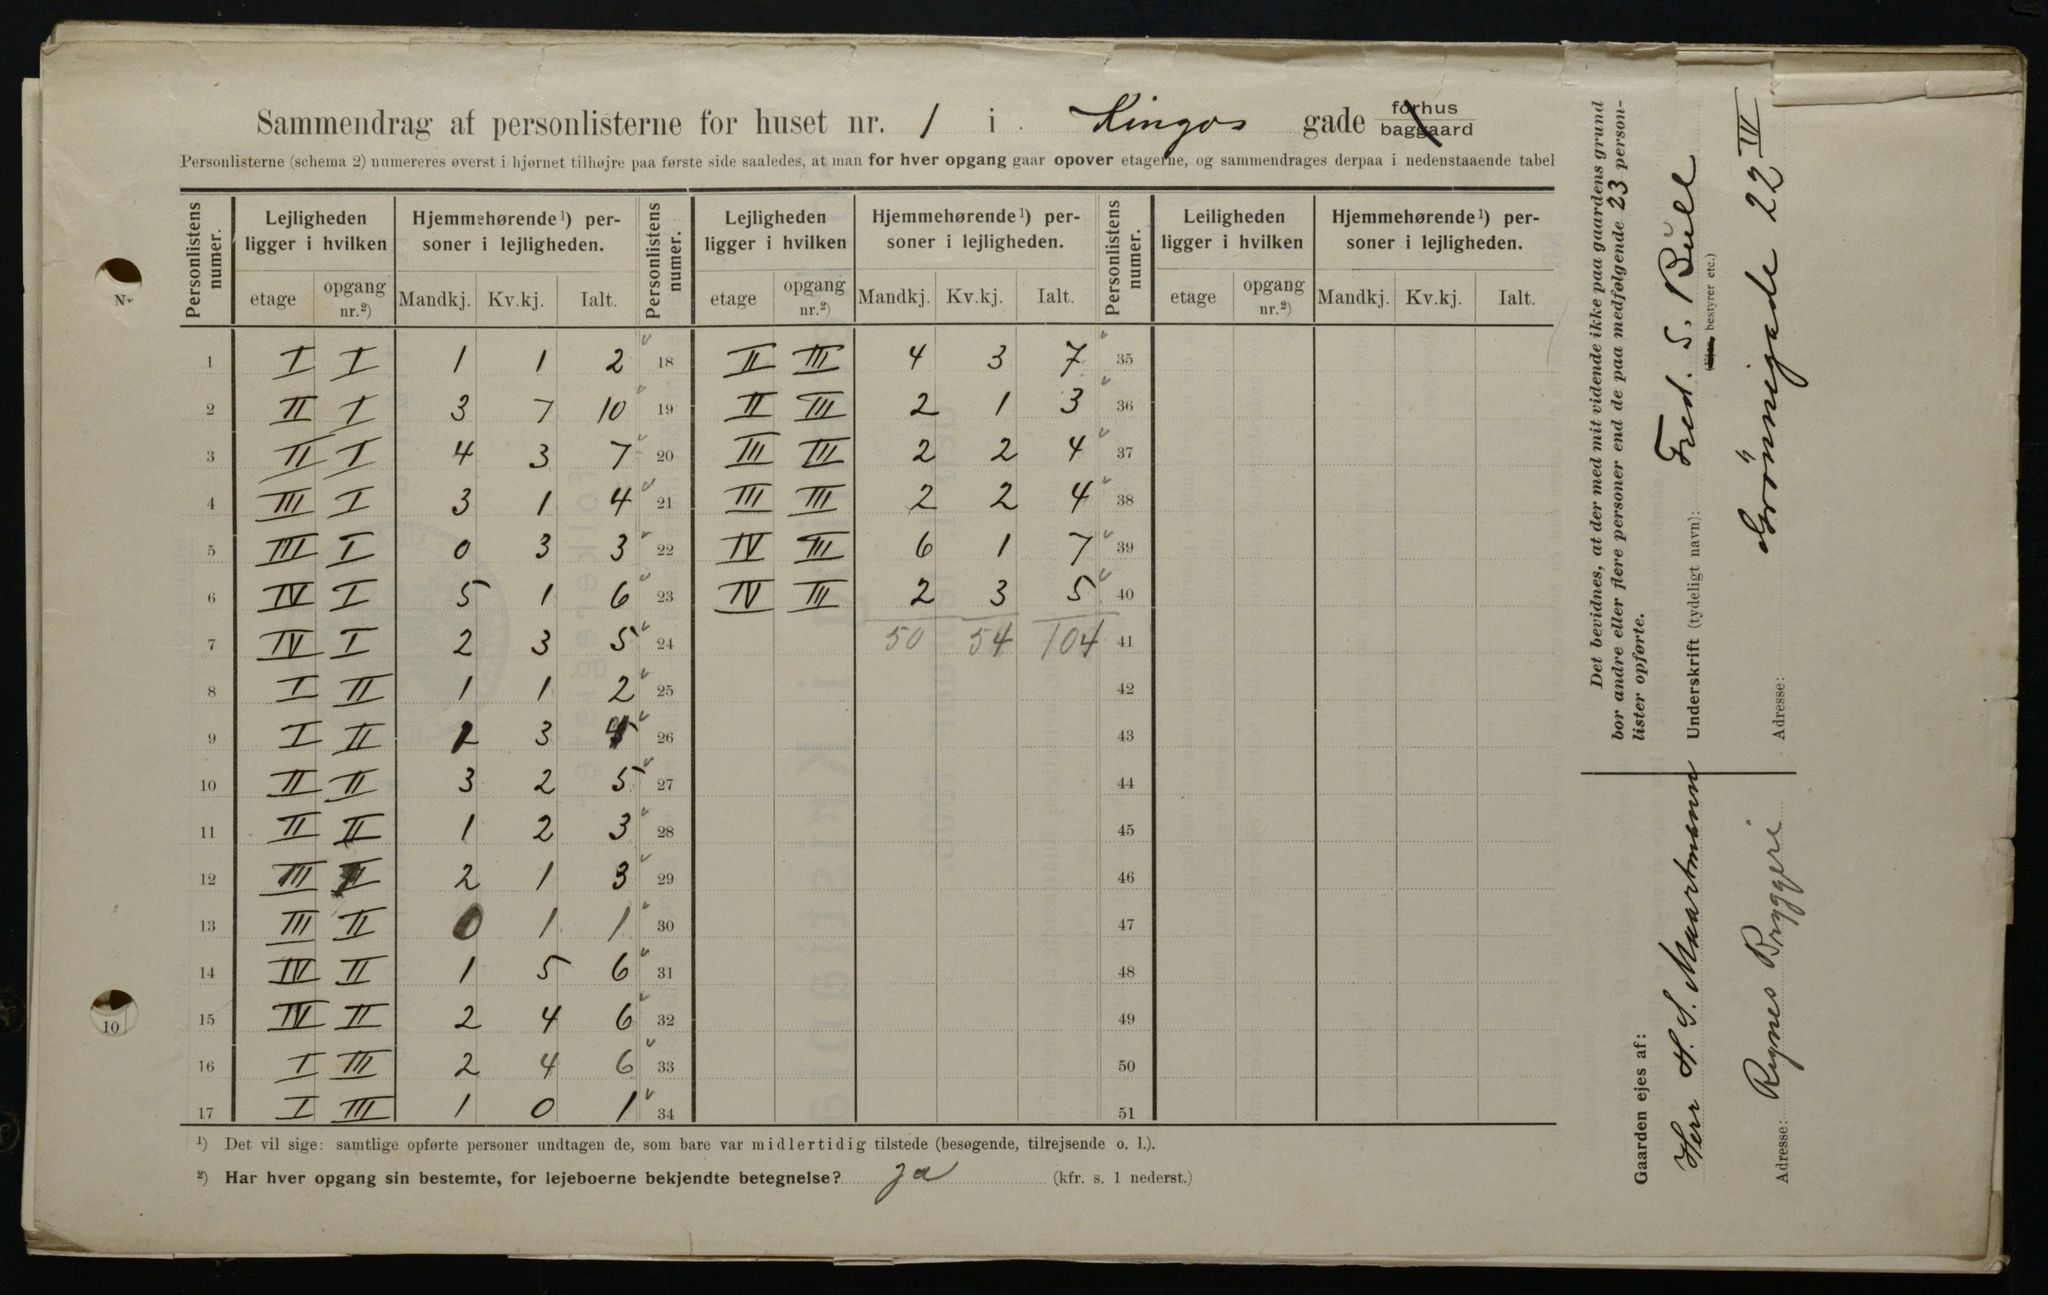 Sammendrag af personlisterne for huset nr. 1 i Kingos gade forhus baggaard
Personlisterne (schema 2) numereres øverst i hjørnet tilhøjre paa første side saaledes, at man for hver opgang gaar opover etagerne, og sammendrages derpaa i nedenstaaende tabel
Personlistens numer. Lejligheden ligger i hvilken Hjemmehørende ¹) personer i lejligheden. Personlistens numer. Lejligheden ligger i hvilken Hjemmehørende ¹) personer i lejligheden. Personlistens numer. Leiligheden ligger i hvilken Hjemmehørende ¹) personer i lejligheden.
etage opgang nr.²) Mandkj. Kv.kj. Ialt. etage opgang nr.²) Mandkj. Kv.kj. Ialt. etage opgang nr.²) Mandkj. Kv.kj. Ialt.
1 I I 1 1 2 18 II III 4 3 7 35
2 II I 3 7 10 19 II III 2 1 3 36
3 II I 4 3 7 20 III III 2 2 4 37
4 III I 3 1 4 21 III III 2 2 4 38
5 III I 0 3 3 22 IV III 6 1 7 39
6 IV I 5 1 6 23 IV III 2 3 5 40
7 IV I 2 3 5 24 50 54 104 41
8 I II 1 1 2 25 42
9 I II 2 3 5 26 43
10 II II 3 2 5 27 44
11 II II 1 2 3 28 45
12 III II 2 1 3 29 46
13 III II 0 1 1 30 47
14 IV II 1 5 6 31 48
15 IV II 2 4 6 32 49
16 I III 2 4 6 33 50
17 I III 1 0 1 34 51
¹) Det vil sige: samtlige opførte personer undtagen de, som bare var midlertidig tilstede (besøgende, tilrejsende o. l.).
²) Har hver opgang sin bestemte, for lejeboerne bekjendte betegnelse? ja (kfr. s. 1 nederst.)
Det bevidnes, at der med mit vidende ikke paa gaardens grund
bor andre eller flere personer end de paa medfølgende 23 person-
lister opførte.
Underskrift (tydeligt navn): Fred. S. Bull
bestyrer etc.)
Adresse: Grönnegade 22 IV
Gaarden ejes af:
Herr H. S. Maartmann
Adresse: Rynes Bryggeri
10